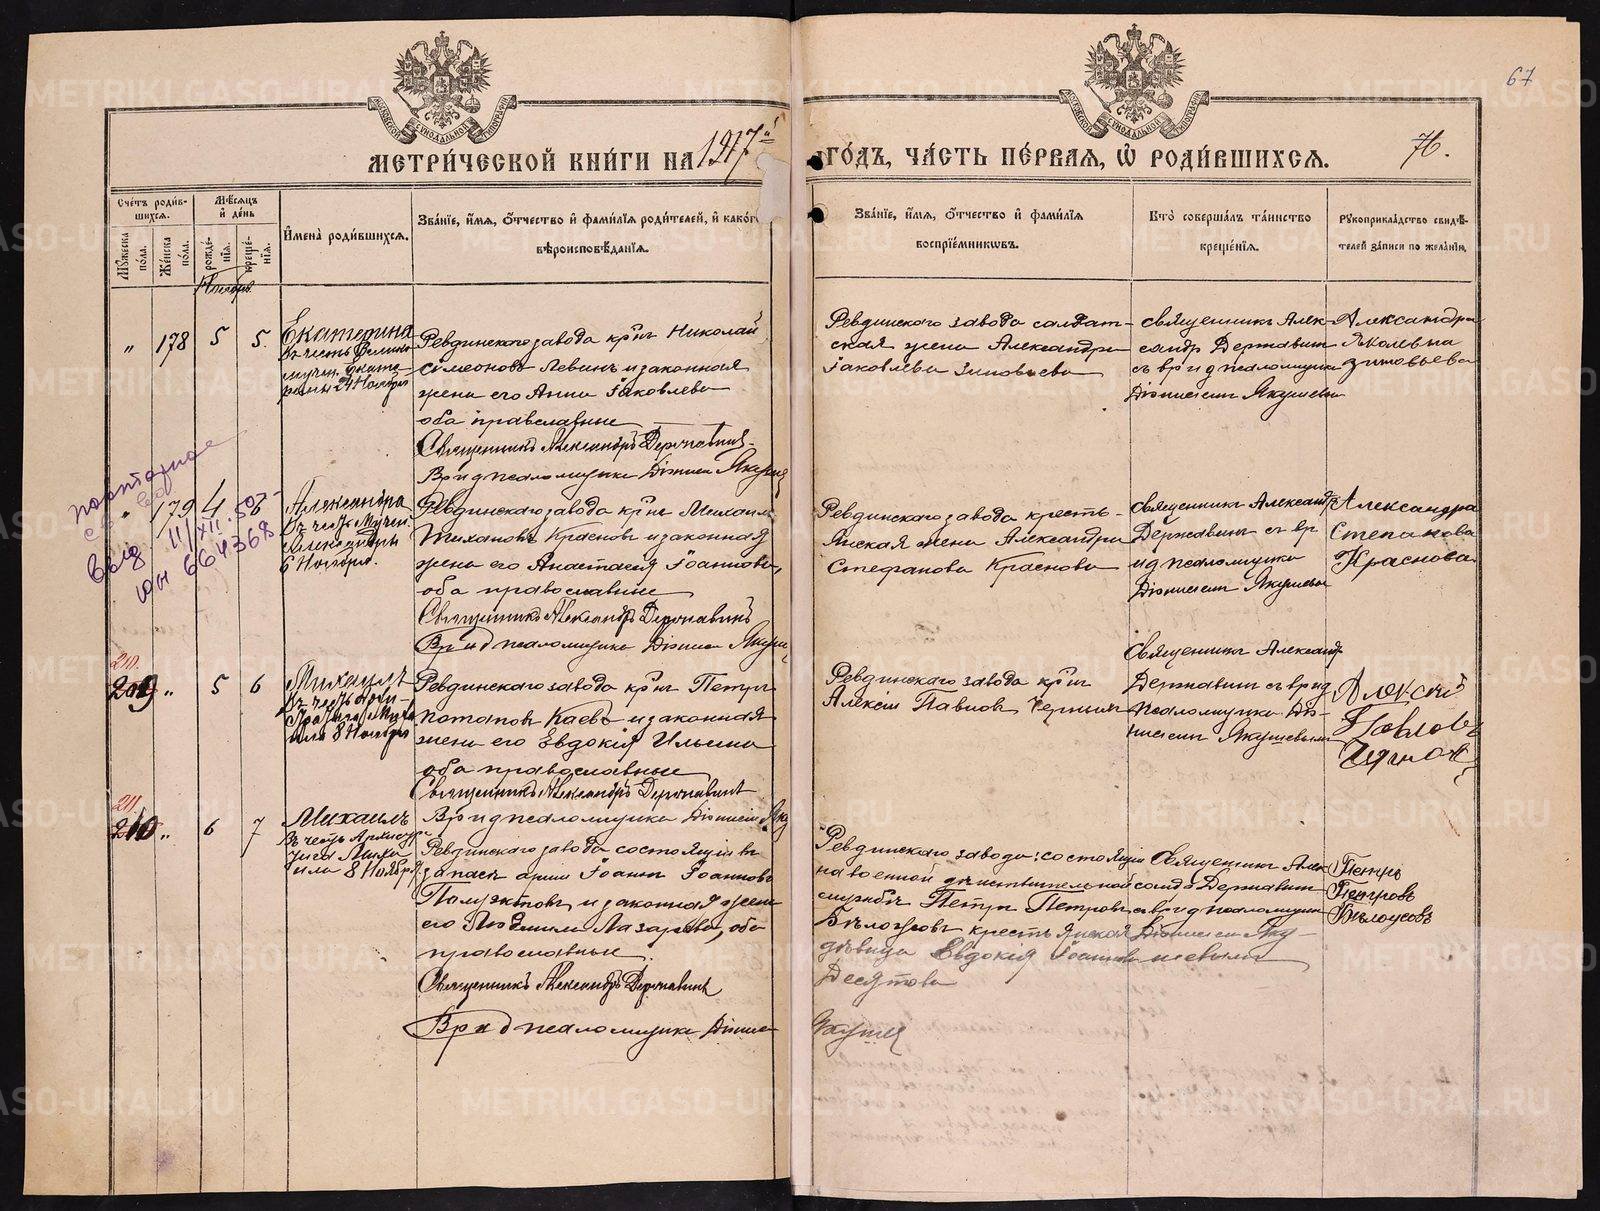 67
МЕТРИ́ЧЕСКОЙ КНИ́ГИ НА 1917й
ГО́ДЪ, ЧА́СТЬ ПЕ́РВАЯ, Ѡ РОДИ́ВШИХСЯ.
76.
Сче́тъ роди́в-
шихся.
Мѣ́сяцъ
и де́нь
Мꙋ́жеска
по́ла.
Же́нска
по́ла.
рожде́-
нїя.
креще́-
нїя.
И҆мена̀ роди́вшихся.
Зва́нїе, и҆́мя, ѻ҆́тчество и҆ фами́лїя роди́телей, и҆ како́гѡ
вѣроисповѣ́данїя.
Зва́нїе, и҆́мя, ѻ҆́тчество и҆ фами́лїя
воспрїе́мникѡвъ.
Кто̀ соверша́лъ та́инство
креще́нїя.
Рꙋкоприкла́дство свидѣ́-
телей за́писи по жела́нїю.
Ноябрь
„ 178 5 5.
Екатерина
въ честь Велико
мучен. Екате-
рины 24 Ноября
Ревдинскаго завода кр-нъ Николай
Симеоновъ Левинъ и законная
жена его Анна Іаковлева
оба православные
Священникъ Александръ Державинъ
Вр и д псаломщика Діонисій Якушев
Ревдинскаго завода солдат-
ская жена Александра
Іаковлева Зиновьева
Священникъ Алек-
сандр Державинъ
съ вр и д псаломщика
Діонисіемъ Якушевым
Александра
Яколевна
Зиновьева
повторное
св во
выд 11/XII-50г
ЮИ 664368
„ 179 4 6
Александра
въ честь Мучен.
Александры
6 Ноября.
Ревдинскаго завода кр-нъ Михаилъ
Тихановъ Красновъ и законная
жена его Анастасія Іоаннова,
оба православные
Священникъ Александръ Державинъ
Вр и д псаломщика Діонисій Якуше
Ревдинскаго завода кресть-
янская жена Александра
Стефанова Краснова
Священникъ Александръ
Державинъ съ вр
и д псаломщика
Діонисіем Якушевым
Александра
Степанова
Краснова.
210.
209 „ 5 6
Михаилъ
въ честь Архи-
Стратига Миха
ила 8 Ноября
Ревдинскаго завода кр-нъ Петръ
Потаповъ Каевъ и законная
жена его Евдокія Ильина
оба православные
Священникъ Александръ Державинъ
Вр и д псаломщика Діонисій Яку
Ревдинскаго завода кр-нъ
Алексій Павловъ Черновъ
Священникъ Александр
Державинъ съ вр и д
псаломщика Діо-
нисіем Якушевымъ
Алексій
Павловъ
Чернов
211.
210 „ 6 7
Михаилъ
въ честь Архистра
тига Миха
ила 8 Ноября
Ревдинскаго завода состоящій въ
запасѣ арміи Іоаннъ Іоанновъ
Полуэктовъ и законная жена
его Людмила Лазарева, оба
православные
Священникъ Александръ Державинъ
Вр и д псаломщика Діониси
Якушев
Ревдинскаго завода: состоящій
на военной дѣйствительной
службѣ Петръ Петровъ
Бѣлоусовъ крестьянская
дѣвица Евдокія Іоаннова
Десятова
Священникъ Алек
сандр Державин
съ вр и д псаломщика
Діонисіем Яку-
шевымъ
Петръ
Петровъ
Бѣлоусовъ